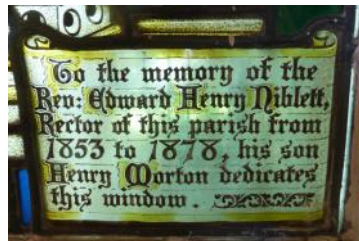 To the memory of the
Rev: Edward Henry Niblett,
Rector of this parish from
1853 to 1878, his son
Henry Morton dedicates
this window.